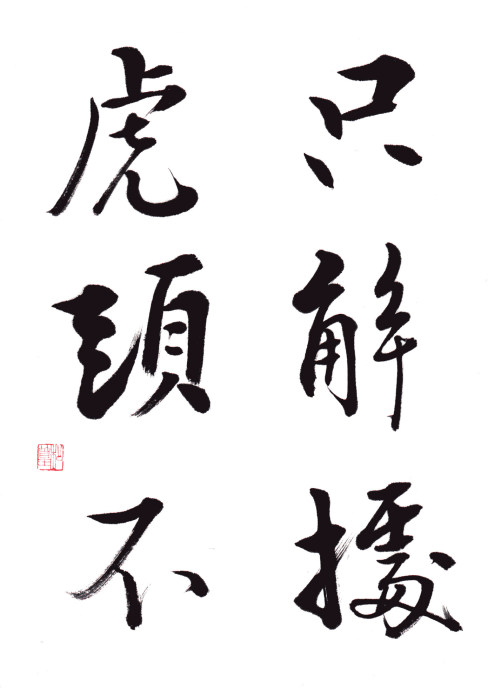 只解據
虎頭不